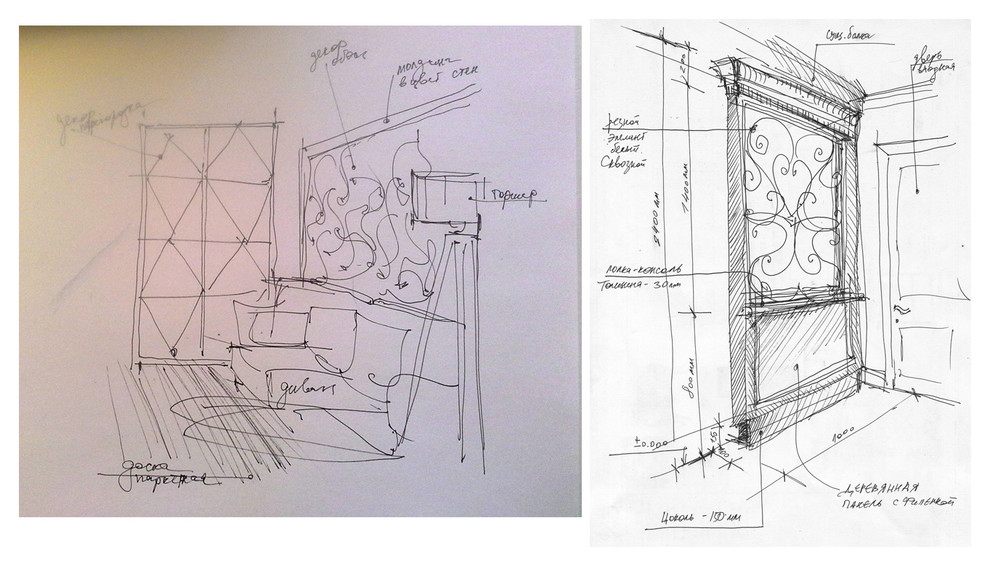 декор
обои
молдинг
в цвет стен
декор
торшер
диван
доска
паркетная
сущ. балка
дверь
входная
резной
элемент
белый
сквозной
1400 мм
полка-консоль
Толщина - 30 мм
800 мм
±0.000
1000
ДЕРЕВЯННАЯ
ПАНЕЛЬ С ФИЛЕНКОЙ
Цоколь - 150 мм